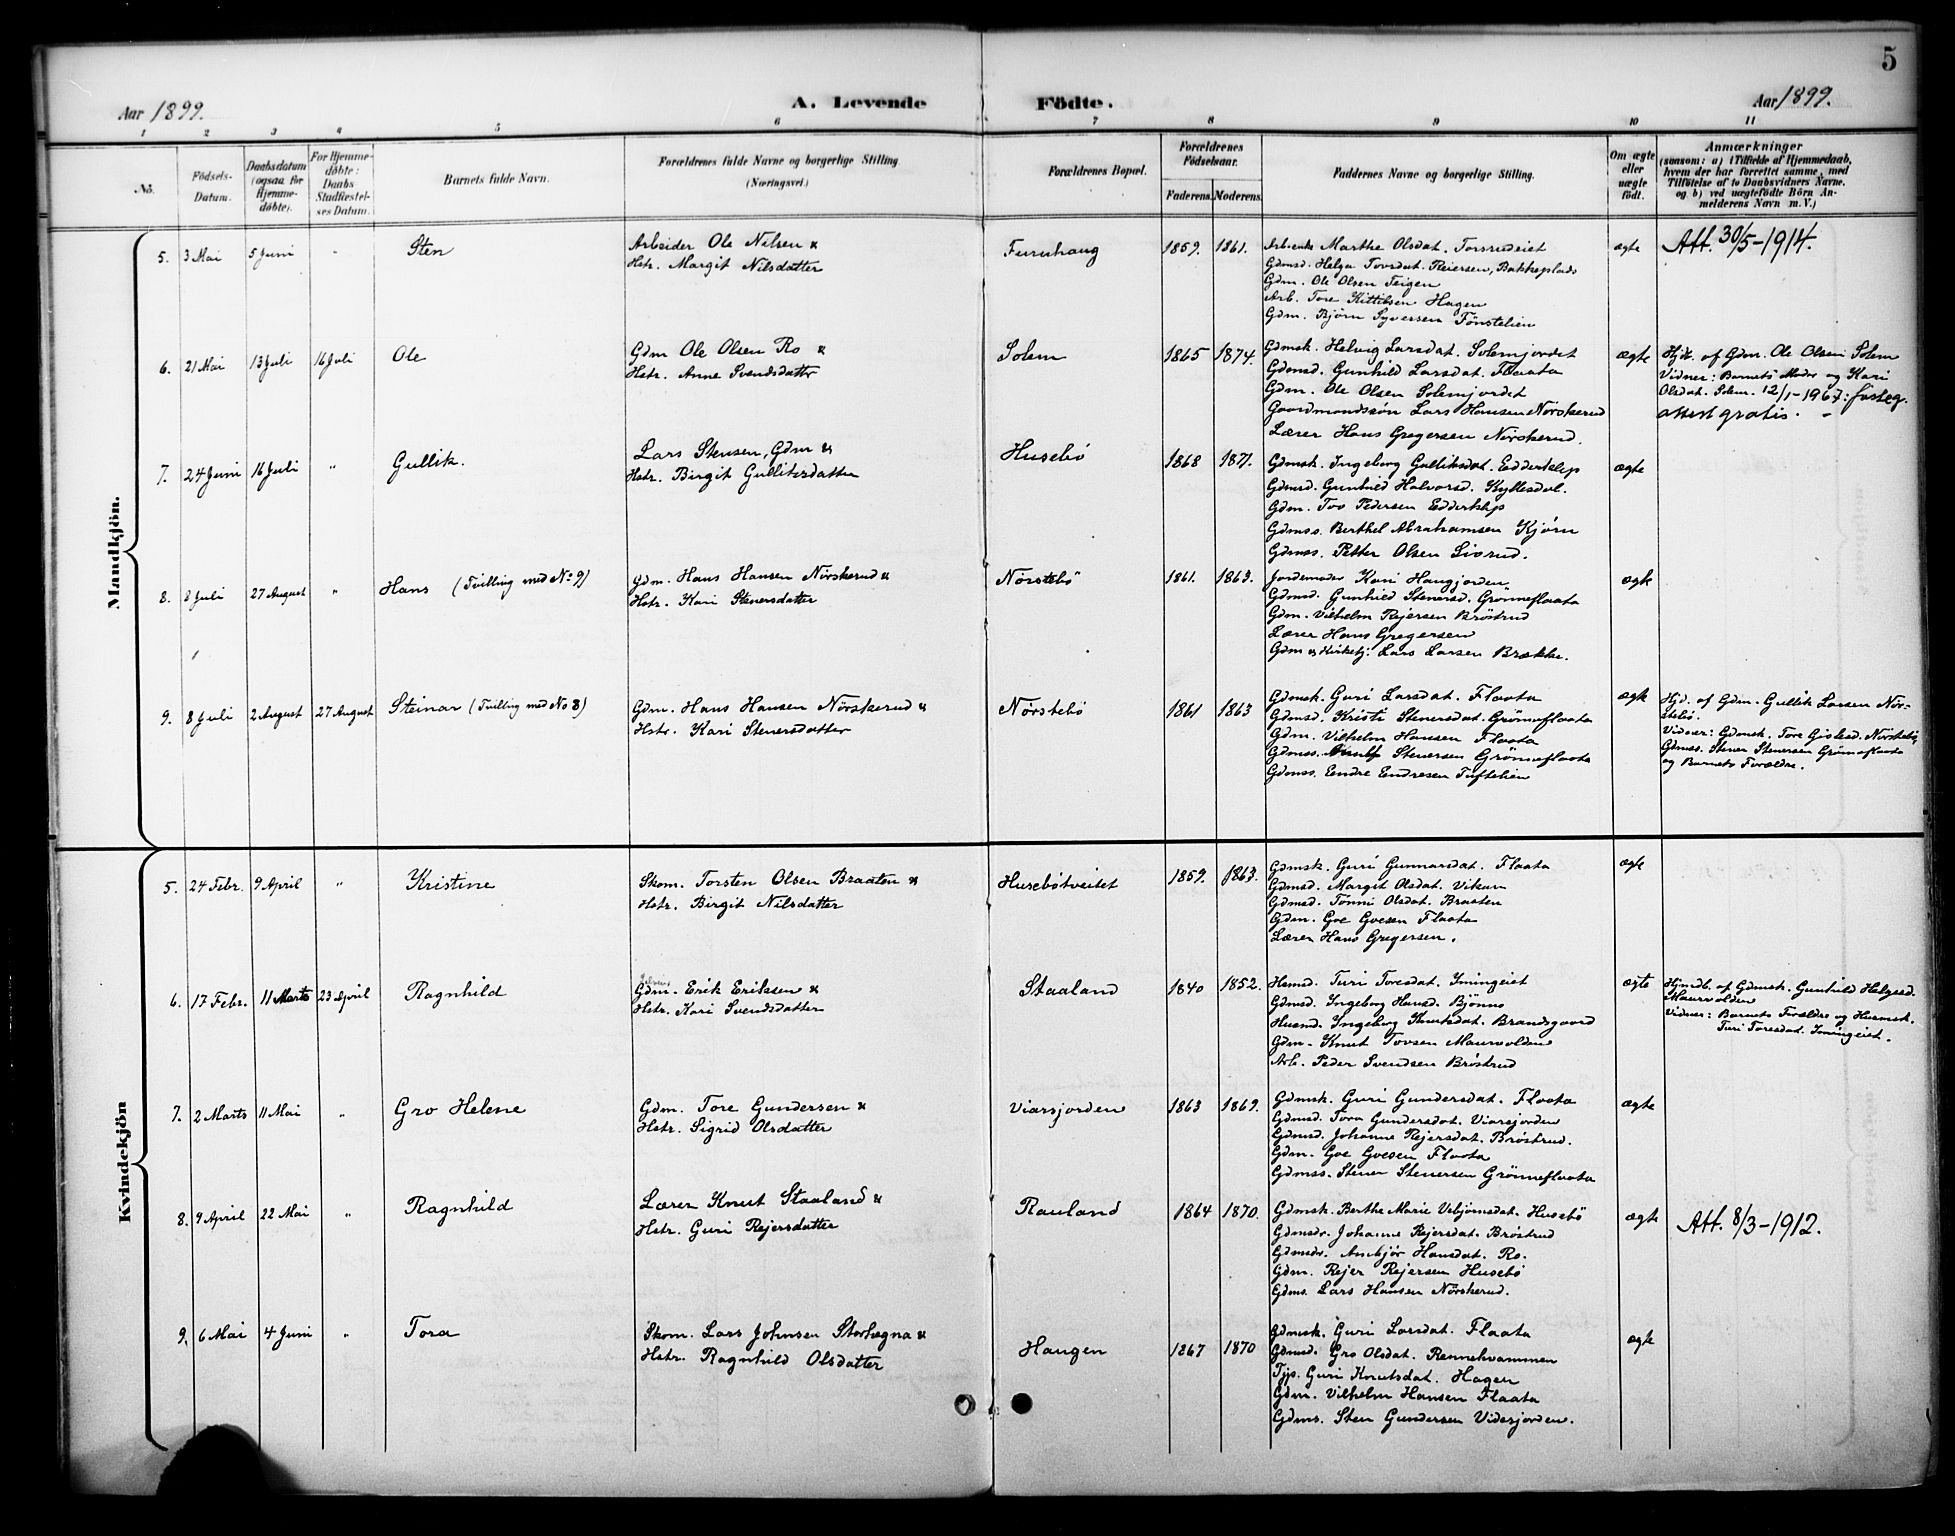 5
Aar 1899. A. Levende Födte. Aar 1899.
1 2 3 4 5 6 7 8 9 10 11
No.
Födsels-Datum.
Daabsdatum (ogsaa for Hjemme-döbte).
For Hjemme-döbte: Daabs Stadfæstel-ses Datum.
Barnets fulde Navn.
Forældrenes fulde Navne og borgerlige Stilling (Næringsvei.)
Forældrenes Bopæl.
Forældrenes Födselsaar.
Faderens. Moderens.
Faddernes Navne og borgerlige Stilling.
Om ægte eller uægte födt.
Anmærkninger
(saasom: a) i Tilfælde af Hjemmedaab, hvem der har forrettet samme, med Tilföielse af to Daabsvidners Navne, og b) ved uægtefödte Börn An-melderens Navn m. V.)
Mandkjön.
5. 3 Mai 5 Juni " Sten
Arbeider Ole Nilsen &
Hstr. Margit Nilsdatter
Furuhaug 1859. 1861.
Arb.enke Marthe Olsdat. Torsrudeiet
Gdmsd. Helga Tovsdat. Reiersen, Bakkeplads
Gdm. Ole Olsen Teigen
Arb. Tore Kittilsen Hagen
Gdm. Bjørn Syversen Fönstelien
ægte
Att. 30/5-1914.
6. 21 Mai 13 Juli 16 Juli Ole
Gdm Ole Olsen Ro &
Hstr. Anne Svendsdatter
Solem 1865 1874.
Gdmsk. Helvig Larsdat. Solemjordet
Gdmsd. Gunhild Larsdat. Flaata
Gdm. Ole Olsen Solemjordet
Gaardmandssön Lars Hansen Nörskerud
Lærer Hans Gregersen Nörskerud.
ægte
Hjd. af Gdm. Ole Olsen Solem
Vidner: Barnets Moder og Kari
Olsdat. Solem. 12/1-1967: fasteg.
attest gratis.
7. 24 Juni 16 Juli " Gullik.
Lars Stensen, Gdm &
Hstr. Birgit Gulliksdatter
Husebö 1868 1871.
Gdmsk. Ingeborg Gulliksdat. Edderklep
Gdmsd. Gunhild Halvorsd. Kyllesdal.
Gdm. Tov Pedersen Edderklep
Gdmss. Berthel Abrahamsen Kjörn
Gdmss. Petter Olsen Livrud.
ægte
8. 8 Juli 27 August " Hans (Tvilling med No 9)
Gdm. Hans Hansen Nörskerud &
Hstr. Kari Stenersdatter
Nörstebö 1861. 1863.
Jordemoder Kari Haugjorden
Gdmsd. Gunhild Stenersd. Grönneflaata
Gdm. Vilhelm Rejersen Bröstrud
Lærer Hans Gregersen
Gdm og Kirketj: Lars Larsen Brække.
ægte
9. 8 Juli 2 August 27 August Steinar (Tvilling med No 8)
Gdm. Hans Hansen Nörskerud &
Hstr. Kari Stenersdatter
Nörstebö 1861 1863
Gdmsk. Guri Larsdat. Flaata
Gdmsd. Kristi Stenersdat. Grönneflaata
Gdm. Vilhelm Hansen Flaata
Gdmss. Stenersen Grönneflaata
Gdmss. Endre Endresen Tuftelien
ægte
Hjd. af Gdm. Gullik Larsen Nör-
stebö.
Vidner: Gdmsk. Tore Gislesd. Nörstebö,
Gdmss. Stener Stenersen Grönneflaata
og Barnets Forældre.
Kvindekjön
5. 24 Febr. 9 April " Kristine
Skom. Torsten Olsen Braaten &
Hstr. Birgit Nilsdatter
Husebötveitet 1859. 1863.
Gdmsk. Guri Gunnarsdat. Flaata
Gdmsd. Margit Olsdat. Vikan
Gdmsd. Tönni Olsdat. Braaten
Gdm. Gve Gvesen Flaata
Lærer Hans Gregersen.
ægte
6. 17 Febr. 11 Marts 23 April Ragnhild
Gdm. Erik Eriksen &
Hstr. Kari Svendsdatter
Staaland 1840 1852.
Husmd. Turi Toresdat. Imingeiet
Gdmsd. Ingeborg Hansd. Björnö
Husmd. Ingeborg Knutsdat. Brandsgaard
Gdm. Knut Tovsen Maurvolden
Arb. Peder Svendsen Bröstrud
ægte
Hjmdb. af Gdmsk. Gunhild Helgesd.
Maurvolden
Vidner: Barnets Forældre og Husmsk.
Turi Toresdat. Imingeiet.
7. 2 Marts 11 Mai " Gro Helene
Gdm. Tore Gundersen &
Hstr. Sigrid Olsdatter
Viarsjorden 1863 1869.
Gdmsk. Guri Gundersdat. Flaata
Gdmsd. Tora Gundersdat. Viarsjorden
Gdmsd. Johanne Rejersdat. Bröstrud.
Gdm. Gve Gvesen Flaata
Gdmss. Stener Stenersen Grönneflaata
ægte
8. 9 April 22 Mai " Ragnhild
Lærer Knut Staaland &
Hstr. Guri Rejersdatter
Rauland 1864 1870.
Gdmsk. Berthe Marie Vebjörnsdat. Husebö
Gdmsdr. Johanne Rejersdat. Bröstrud
Gdmsdr. Ambjör Hansdat. Ro.
Gdm. Rejer Rejersen Husebö
Gdms. Lars Hansen Nörskerud.
ægte
Att. 8/3-1912.
9. 6 Mai 4 Juni " Tora
Skom. Lars Johnsen Storhögna &
Hstr. Ragnhild Olsdatter
Haugen 1867 1870
Gdmsk. Guri Larsdat. Flaata
Gdmsd. Gro Olsdat. Rennehvammen
Tjp. Guri Knutsdat. Hagen
Gdm. Vilhelm Hansen Flaata
Gdms. Sten Gundersen Videsjorden.
ægte